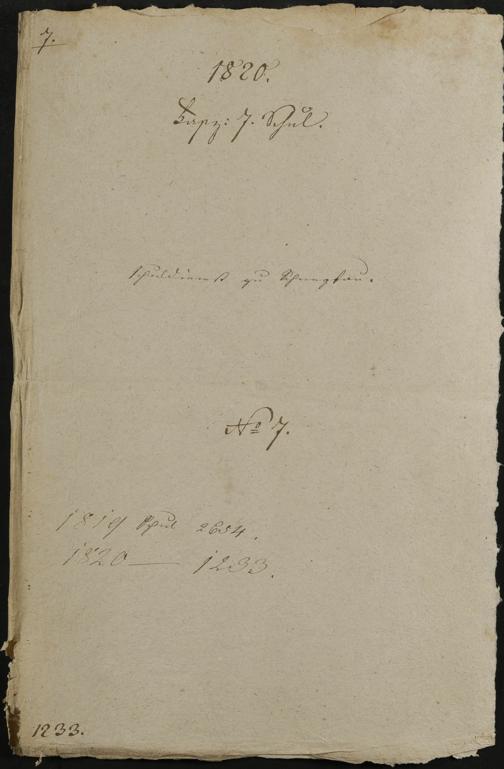 7.
1820.
Fasz: 7. Schul.
Schuldienst zu
No 7.
1819 Schul 2654.
1820 — 1233.
1233.